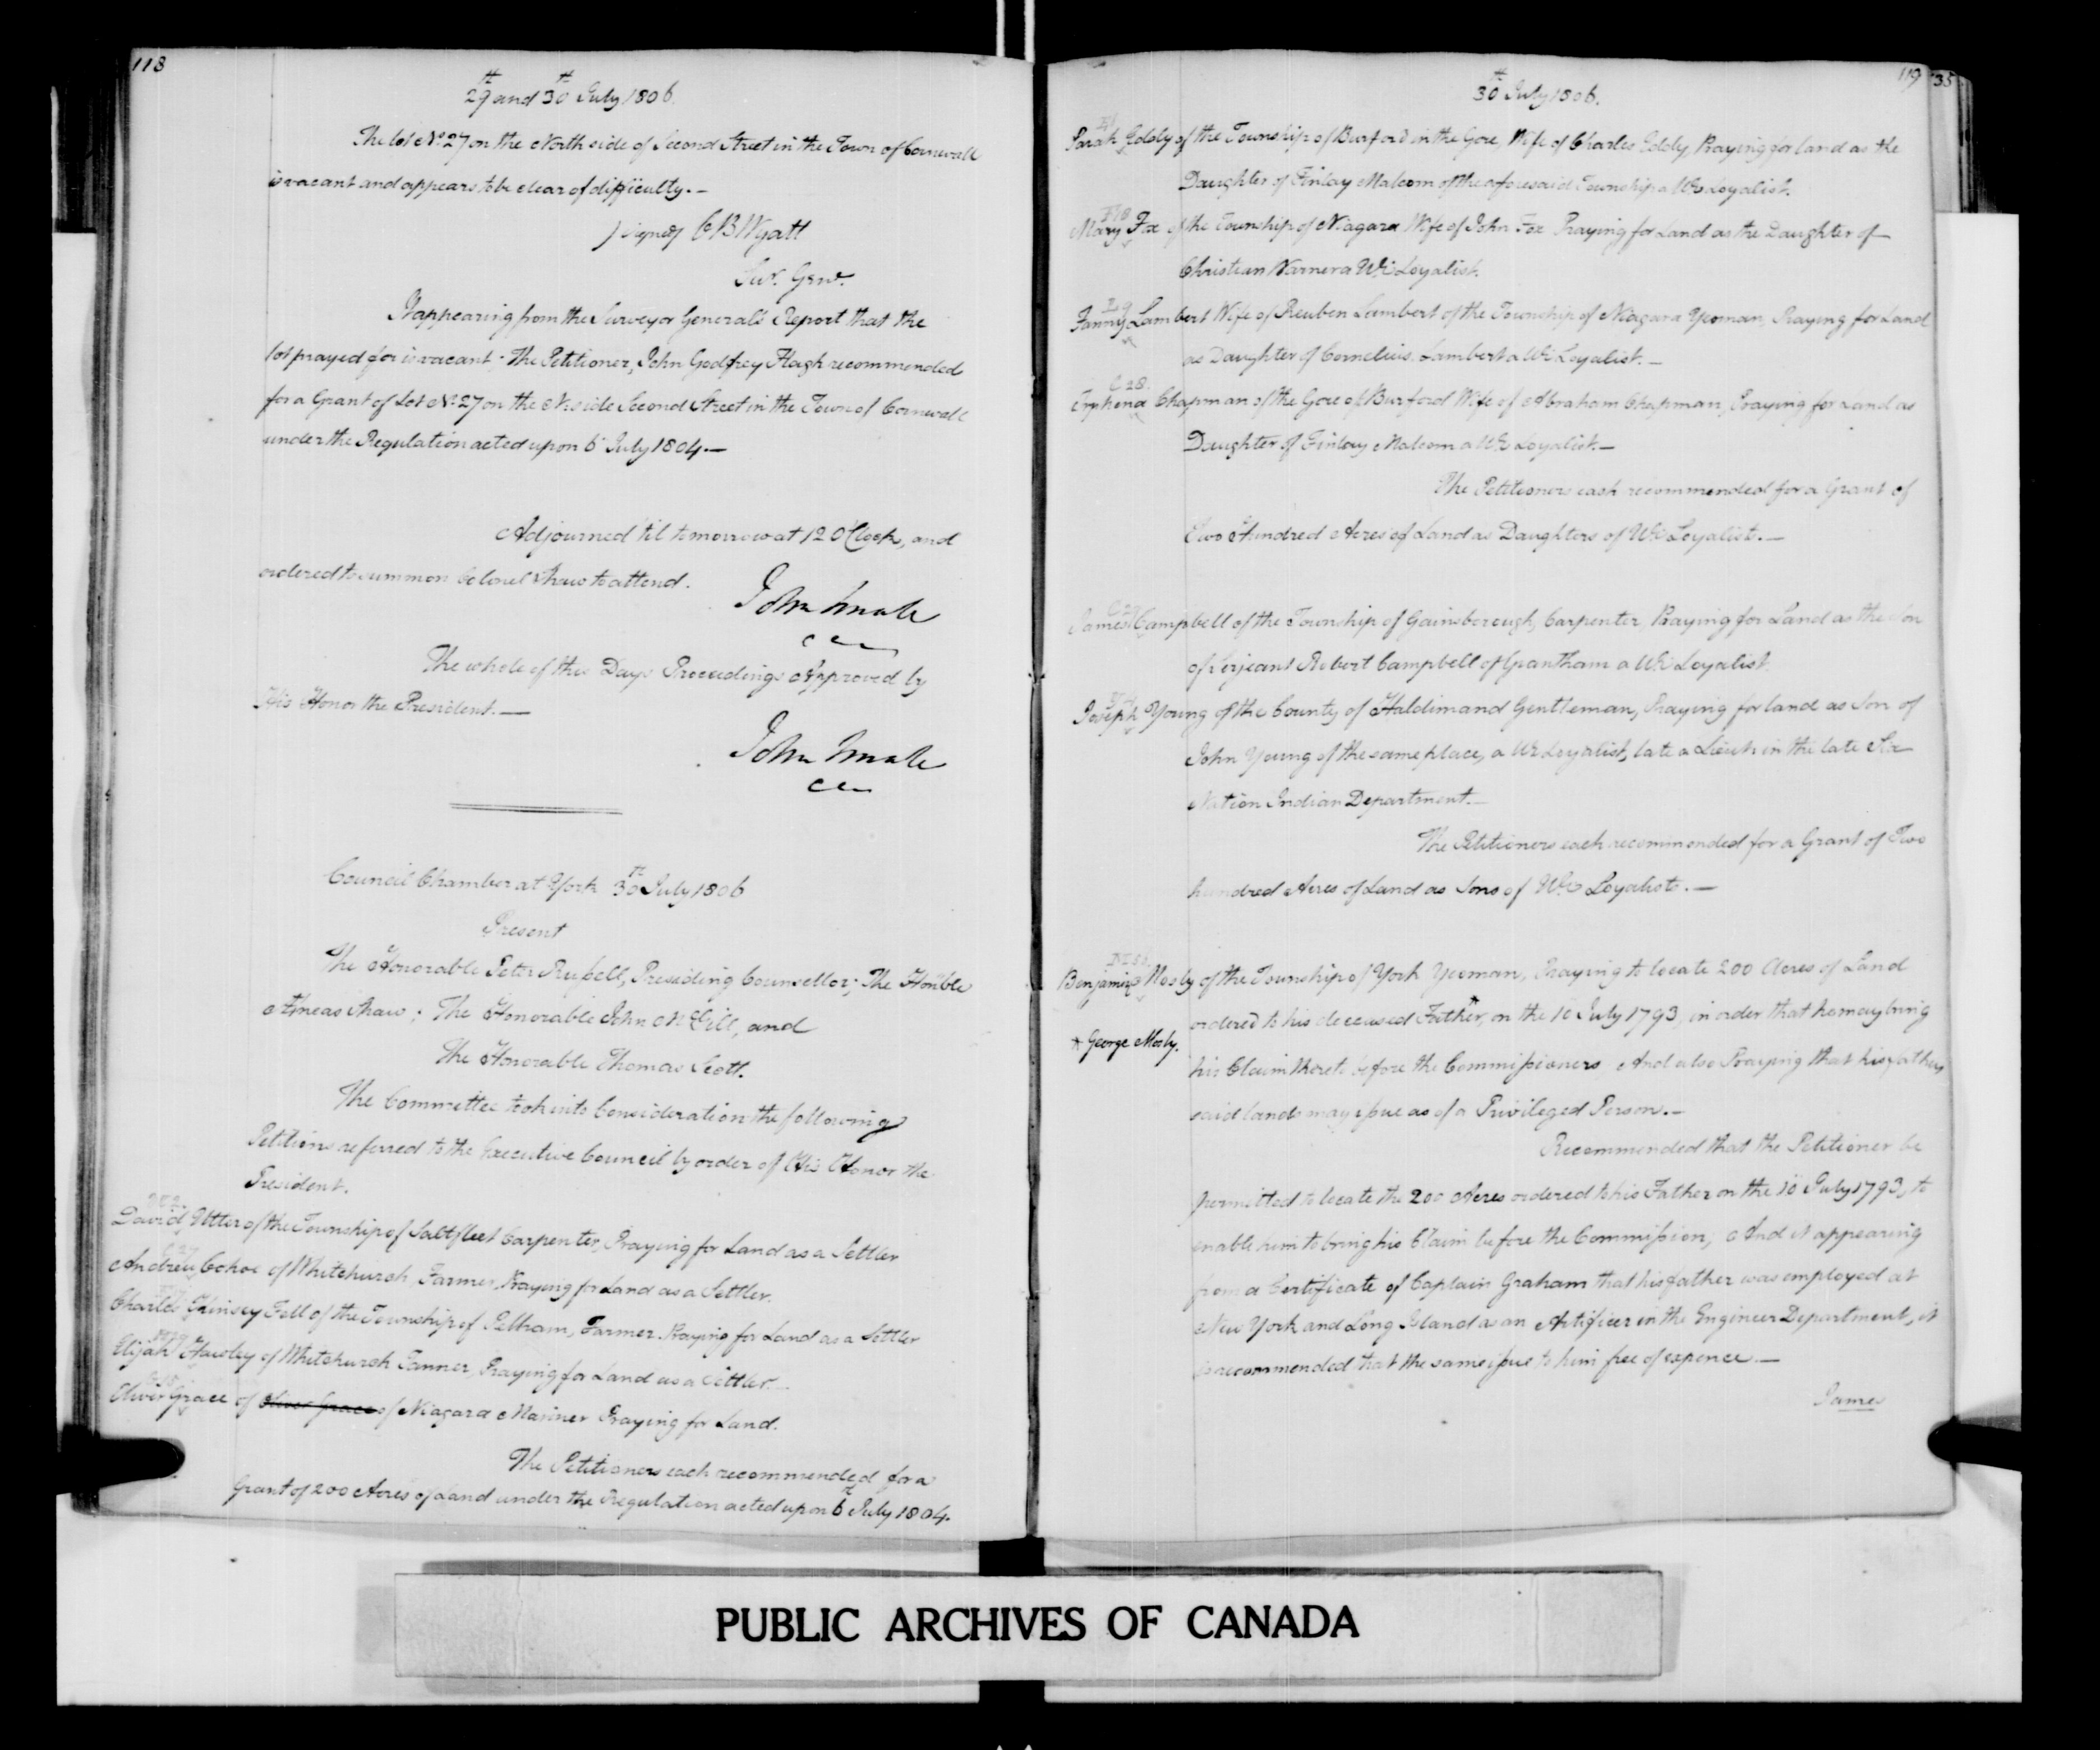 118
29th and 30th July 1806.
The lot No. 27 on the North side of Second Street in the Town of Cornwall
is vacant and appears to be clear of difficulty. —
signed C B Wyatt
Sur. Genl.
It appearing from the Surveyor General's Report that the
lot prayed for is vacant; The Petitioner, John Godfrey recommended
for a Grant of Lot No. 27 on the N. side Second Street in the Town of Cornwall
under the Regulation acted upon 6 July 1804. —
Adjourned til tomorrow at 12 O'Clock, and
ordered to summon Colonel Shaw to attend.
John
The whole of this Days Proceedings Approved by
His Honor the President. —
John
Council Chamber at York 30th July 1806
Present
The Honorable Peter Russell, Presiding Counsellor; The Honble
Æneas Shaw; The Honorable John McGill, and
The Honorable Thomas Scott.
The Committee took into Consideration the following
Petitions referred to the Executive Council by order of His Honor the
President.
David Utter of the Township of Saltfleet Carpenter, Praying for Land as a Settler
C 27
Andrew Cohoe of Whitchurch, Farmer, Praying for Land as a Settler.
Charles Kinsey Fell of the Township of Pelham, Farmer. Praying for Land as a Settler
Elijah Hawley of Whitchurch Tanner, Praying for Land as a Settler. —
Oliver Grace of Oliver Grace of Niagara Mariner Praying for Land.
The Petitioners each recommended for a
Grant of 200 Acres of Land under the Regulation acted upon 6th July 1804.
119 35
30th July 1806.
Sarah Eddy of the Township of Burford in the Gore, Wife of Charles Eddy, Praying for land as the
Daughter of Finlay Malcom of the aforesaid Township a UE Loyalist.
F 18
Mary Fox of the Township of Niagara Wife of John Fox Praying for Land as the Daughter of
Christian Warner a UE Loyalist.
L 9
Fanny Lambert Wife of Reuben Lambert of the Township of Niagara Yeoman, Praying for Land
as Daughter of Cornelius Lambert a UE Loyalist. —
C 28.
Tryphena Chapman of the Gore of Burford Wife of Abraham Chapman, Praying for Land as
Daughter of Finlay Malcom a UE Loyalist. —
The Petitioners each recommended for a Grant of
Two Hundred Acres of Land as Daughters of UE Loyalists. —
C 29
James Campbell of the Township of Gainsborough, Carpenter, Praying for Land as the Son
of Serjeant Robert Campbell of Grantham a UE Loyalist.
Joseph Young of the County of Haldimand Gentleman, Praying for land as Son of
John Young of the same place, a UE Loyalist, late a Lieut. in the late Six
Nation Indian Department. —
The Petitioners each recommended for a Grant of Two
hundred Acres of Land as Sons of UE Loyalists. —
Benjamin Mosly of the Township of York Yeoman, Praying to locate 200 Acres of Land
ordered to his deceased Father,* on the 10 July 1793, in order that he may bring
* George Mosly.
his Claim thereto before the Commissioners And also Praying that his fathers
said lands may issue as of a Privileged Person. —
Recommended that the Petitioner be
permitted to locate the 200 Acres ordered to his Father on the 10 July 1793, to
enable him to bring his Claim before the Commission; And it appearing
from a Certificate of Captain Graham that his father was employed at
New York and Long Island as an Artificer in the Engineer Department, it
is recommended that the same issue to him free of expence. —
James
PUBLIC ARCHIVES OF CANADA